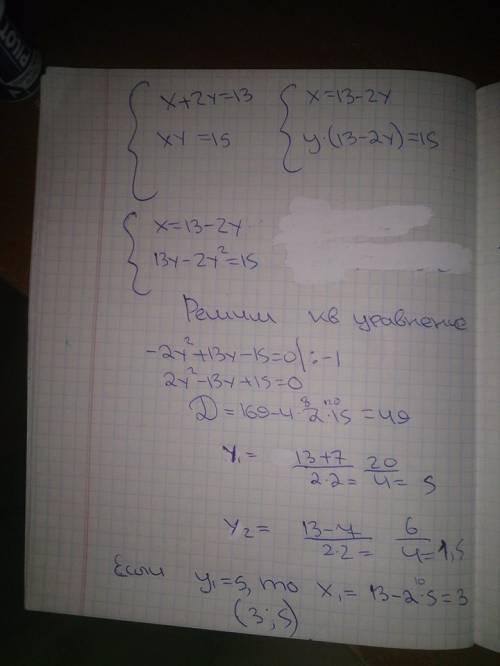 PILOT
x+2y=13 x=13-2y
xy=15 y·(13-2y)=15
x=13-2y
13y-2y²=15
Решим кв уравнение
-2y²+13y-15=0 | :-1
2y²-13y+15=0
8 120
D=169-4·2·15=49
y₁= 13+7/2·2= 20/4= 5
y₂= 13-7/2·2= 6/4=1,5
10
Если y₁=5, то x₁=13-2·5=3
(3;5)